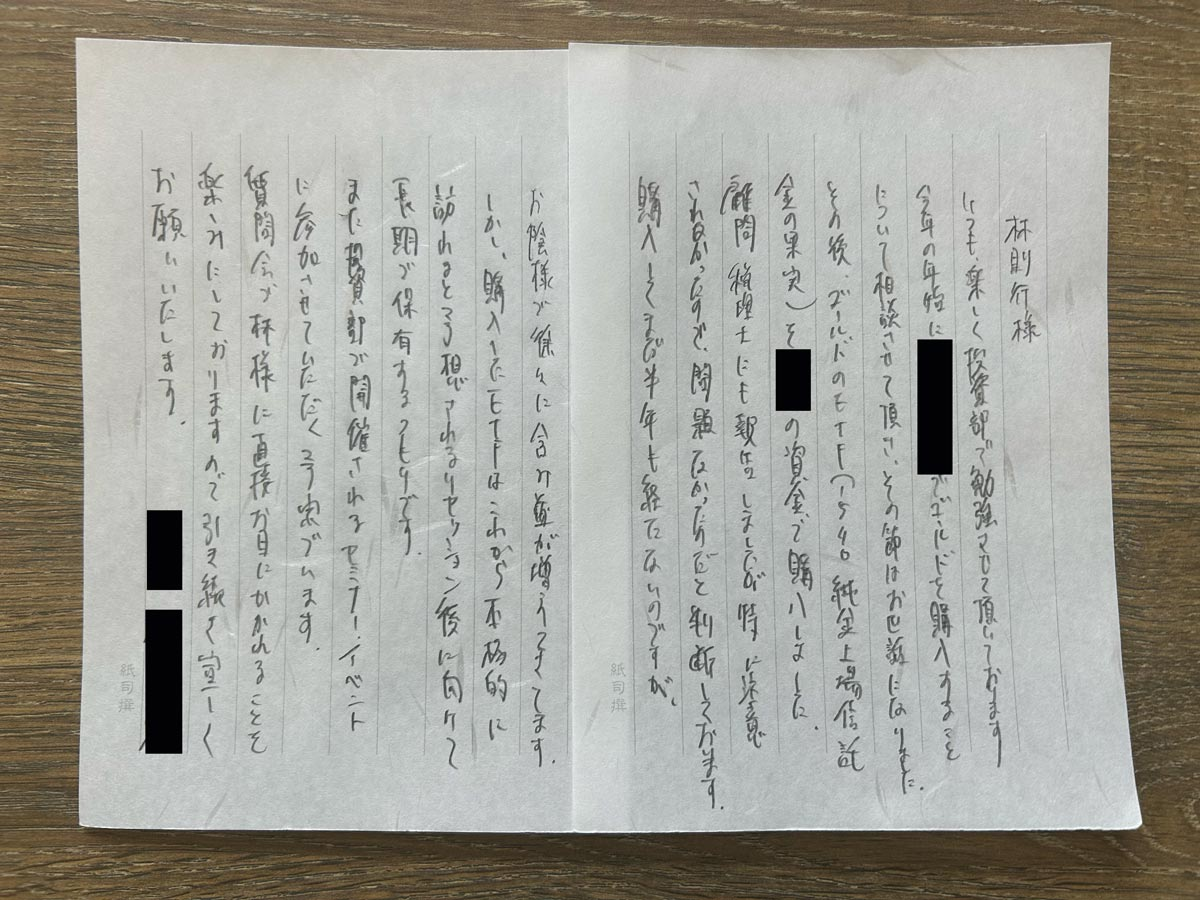 林則行様
いつも、楽しく投資部で勉強させて頂いております
今年の年始に でゴールドを購入すること
について相談させて頂き、その節はお世話になりました.
その後、ゴールドのETF(1540 純金上場信託
金の果実)を の資金で購入しました.
顧問税理士にも報告しましたが特に
されなかったので、問題なかったのだと判断しております.
購入してまだ半年も経たないのですが、
お陰様で徐々に含み益が増えてきてます.
しかし、購入したETFはこれから本格的に
訪れるとう想されるリセッション後に向けて
長期で保有するつもりです.
また投資部で開催されるセミナー、イベント
に参加させていただく
質問会で林様に直接お目にかかれることを
楽しみにしておりますので引き続き宜しく
お願いいたします.
紙司撰
紙司撰